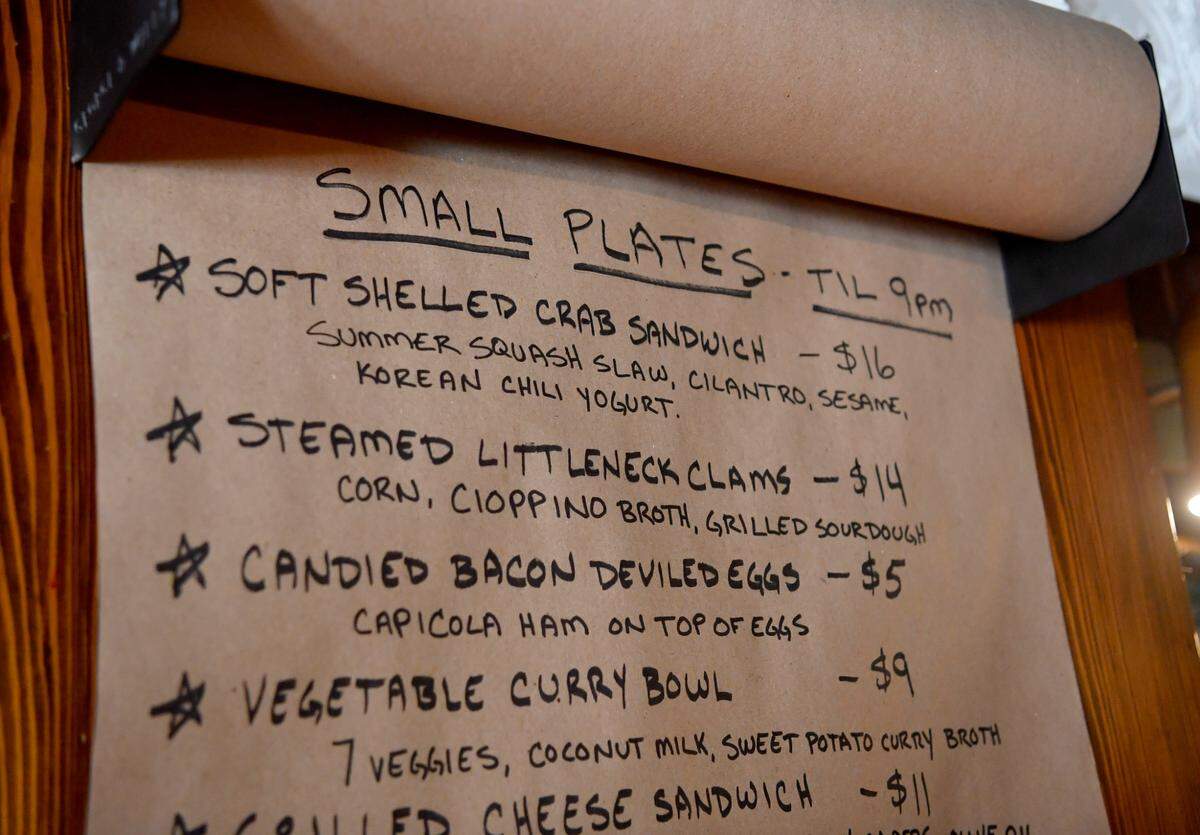 SMALL PLATES - TIL 9PM
SOFT SHELLED CRAB SANDWICH - $16
SUMMER SQUASH SLAW, CILANTRO, SESAME,
KOREAN CHILI YOGURT.
STEAMED LITTLENECK CLAMS - $14
CORN, CIOPPINO BROTH, GRILLED SOURDOUGH
CANDIED BACON DEVILED EGGS - $5
CAPICOLA HAM ON TOP OF EGGS
VEGETABLE CURRY BOWL - $9
7 VEGGIES, COCONUT MILK, SWEET POTATO CURRY BROTH
GRILLED CHEESE SANDWICH - $11
OLIVE OIL